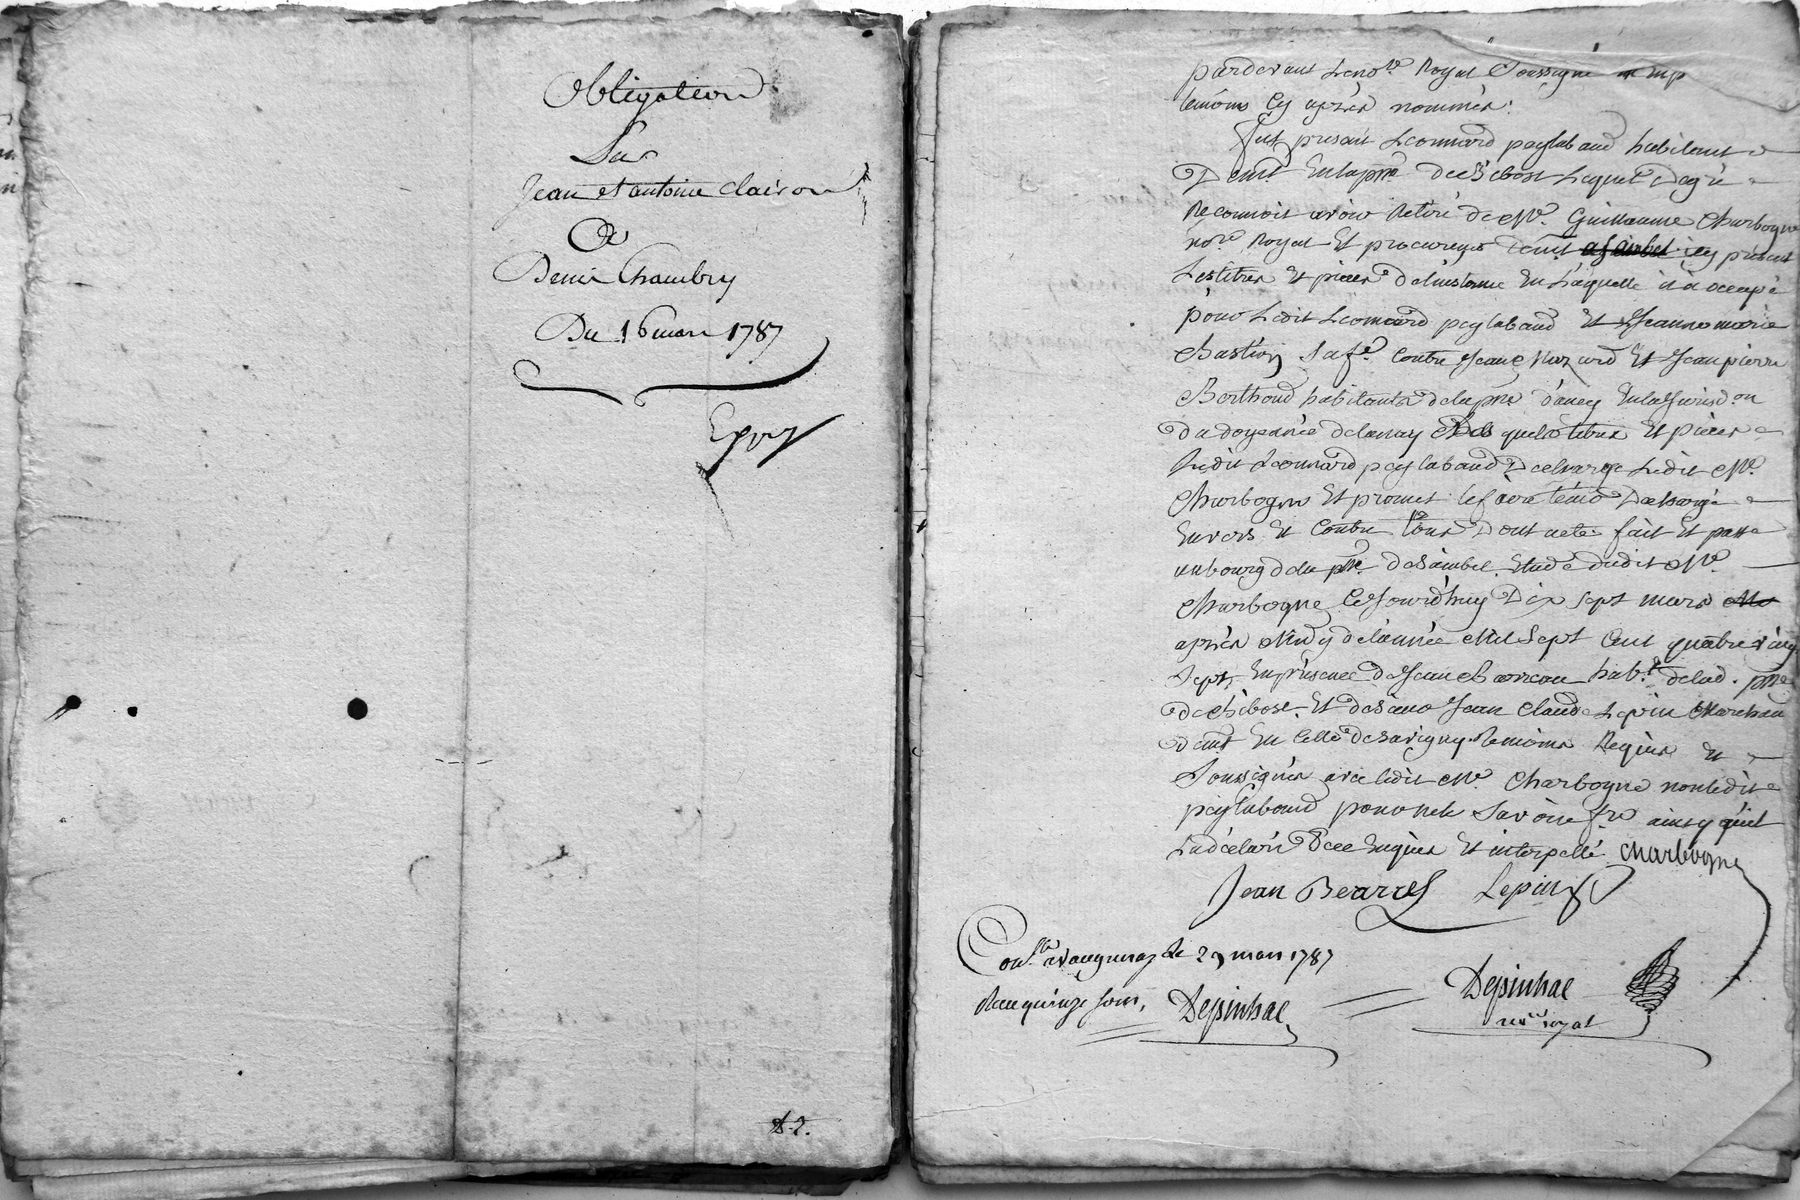 Obligation
Sur
Jean et antoine clairon
A
Denis Chambry
Du 16 mars 1787
Expez
pardevant Le no.re Royal Soussigné
temoins Cy après nommés:
fut present Leonnard peylabaud habitant
Dem.t En la p.sse Lequel de gré
Reconnoit avoir Retiré de M.e Guillaume Charbogne
no.re Royal Et procureur cy présent
Les titres Et pieces de l'instance En Laquelle il a occupé
pour Ledit Leonnard peylabaud Et Jeanne marie
Chastion Sa f.e Contre Jean Mazard Et Jean pierre
Berthoud habitants de la p.sse d'ancy En la Jurisd.on
Du doyenné de lanay Des quels titres Et pieces
Ledit Leonnard peylabaud Decharge Ledit M.e
Charbogne Et promet le faire tenir Dechargé
Envers Et Contre tous Dont acte fait Et passé
au bourg de la p.sse de Sainbel Etude dudit M.e
Charbogne Ce Jourd'huy Dix Sept mars
après Midy de l'année Mil Sept Cent quatre vingt
Sept, En présence de Jean hab.t de lad. p.sse
Et de Sieur Jean Claude Lepin Marchand
dem.t En Celle de Savigny temoins Requis Et
Soussignés avec ledit M.e Charbogne non ledit
peylabaud pour ne le Savoir f.re ainsy qu'il
La déclaré De ce Enquis Et interpellé Charbogne
Jean Lepin
Con.llé a vaugneray le 29 mars 1787
Recu quinze sous, Depinhac
Depinhac
no.re royal